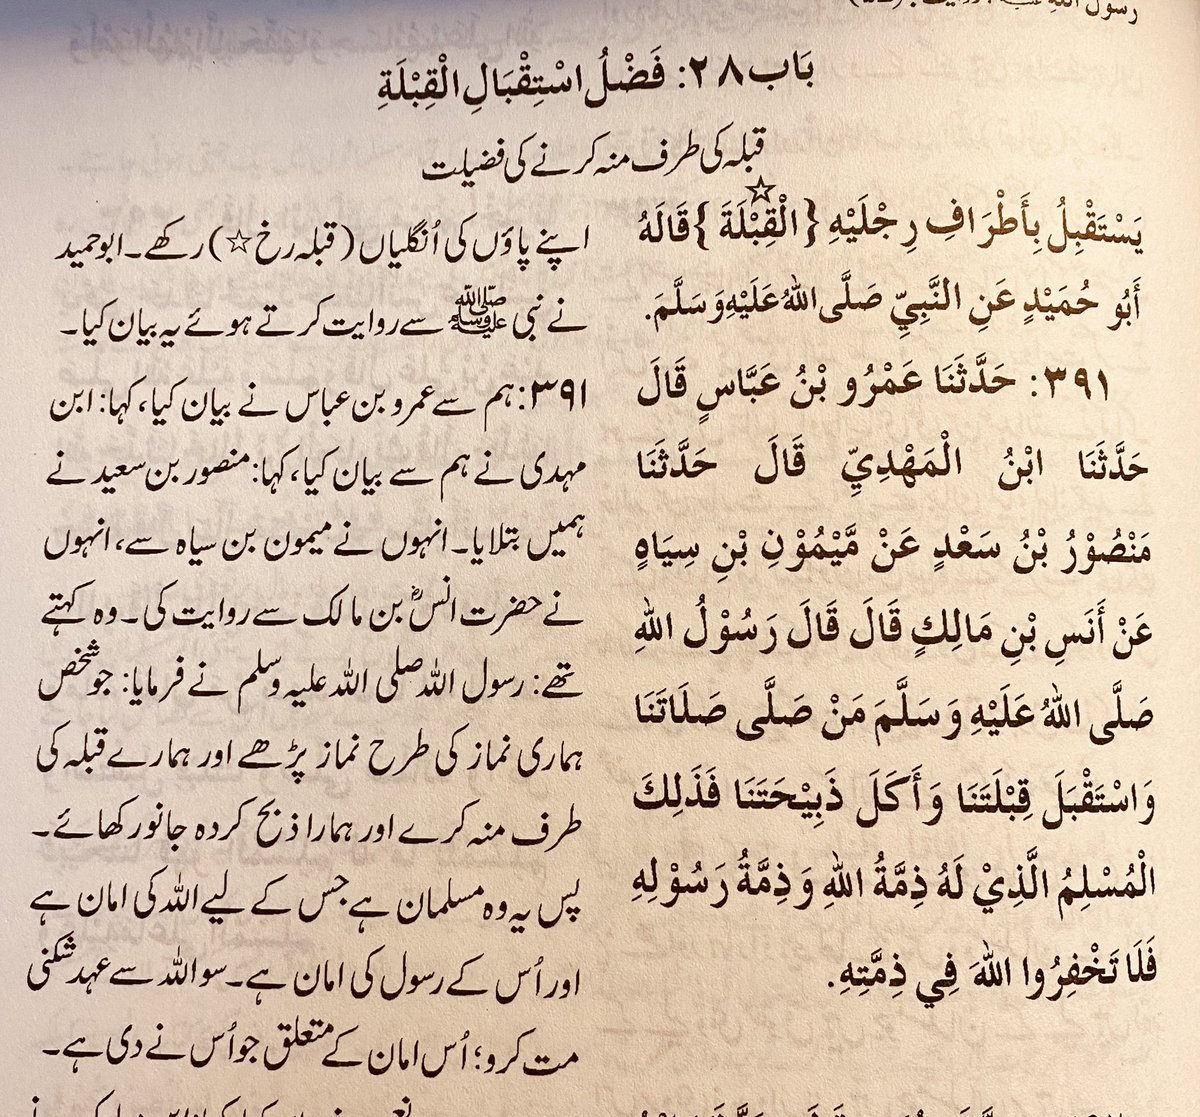 باب ۲۸: فَضْلُ اسْتِقْبَالِ الْقِبْلَةِ
قبلہ کی طرف منہ کرنے کی فضیلت
يَسْتَقْبِلُ بِأَطْرَافِ رِجْلَيْهِ {الْقِبْلَةَ☆} قَالَهُ
أَبُو حُمَيْدٍ عَنِ النَّبِيِّ صَلَّى اللهُ عَلَيْهِ وَسَلَّمَ.
۳۹۱: حَدَّثَنَا عَمْرُو بْنُ عَبَّاسٍ قَالَ
حَدَّثَنَا ابْنُ الْمَهْدِيِّ قَالَ حَدَّثَنَا
مَنْصُوْرُ بْنُ سَعْدٍ عَنْ مَّيْمُوْنِ بْنِ سِيَاهٍ
عَنْ أَنَسِ بْنِ مَالِكٍ قَالَ قَالَ رَسُوْلُ اللهِ
صَلَّى اللهُ عَلَيْهِ وَسَلَّمَ مَنْ صَلَّى صَلَاتَنَا
وَاسْتَقْبَلَ قِبْلَتَنَا وَأَكَلَ ذَبِيْحَتَنَا فَذٰلِكَ
الْمُسْلِمُ الَّذِيْ لَهُ ذِمَّةُ اللهِ وَذِمَّةُ رَسُوْلِهِ
فَلَا تَخْفِرُوا اللهَ فِي ذِمَّتِهِ.
اپنے پاؤں کی اُنگلیاں (قبلہ رخ☆) رکھے۔ ابوحمید
نے نبی ﷺ سے روایت کرتے ہوئے یہ بیان کیا۔
۳۹۱: ہم سے عمرو بن عباس نے بیان کیا، کہا: ابن
مہدی نے ہم سے بیان کیا، کہا: منصور بن سعید نے
ہمیں بتلایا۔ انہوں نے میمون بن سیاہ سے، انہوں
نے حضرت انسؓ بن مالک سے روایت کی۔ وہ کہتے
تھے: رسول اللہ صلی اللہ علیہ وسلم نے فرمایا: جو شخص
ہماری نماز کی طرح نماز پڑھے اور ہمارے قبلہ کی
طرف منہ کرے اور ہمارا ذبح کردہ جانور کھائے۔
پس یہ وہ مسلمان ہے جس کے لیے اللہ کی امان ہے
اور اُس کے رسول کی امان ہے۔ سو اللہ سے عہد شکنی
مت کرو؛ اُس امان کے متعلق جو اُس نے دی ہے۔